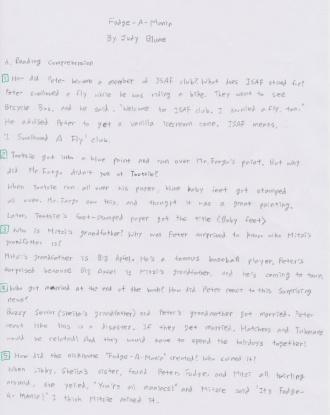 Fudge-A-Mania
By Judy Blume
A. Reading Comprehension
1 How did Peter become a member of ISAF club? What does ISAF stand for?
Peter swallowed a fly while he was riding a bike. They went to see
Bicycle Bob, and he said, "Welcome to ISAF club. I swallowed a fly, too."
He advised Peter to get a vanilla icecream cone. ISAF means,
'I Swallowed A Fly' club.
2 Tootsie got into a blue paint and run over Mr. Fargo's paint. But why
did Mr. Fargo didn't got at Tootsie?
When Tootsie run all over his paper, blue baby feet got stamped
all over. Mr. Fargo saw this, and thought it was a great painting.
Later, Tootsie's foot-stamped paper got the title (Baby feet)
3 Who is Mitzi's grandfather? Why was Peter surprised to know who Mitzi's
grandfather is?
Mitzi's grandfather is Big Apfel. He's a famous baseball player, Peter's
surprised because Big Apfel is Mitzi's grandfather, and he's coming to town
4 Who got married at the end of the book? How did Peter react to this surprising
news?
Buzzy Senior (Sheila's grandfather) and Peter's grandmother got married. Peter
react like this is a disaster. If they get married, Hatchers and Tubmans
could be related! And they would have to spend the holidays together!
5 How did the nickname "Fudge-A-Mania" created? Who coined it?
When Libby, Sheila's sister, found Peter, Fudge, and Mitzi all twirling
around, she yelled, "You're all maniacs!" and Mitzie said "It's Fudge-
a-Mania!" I think Mitzie coined it.